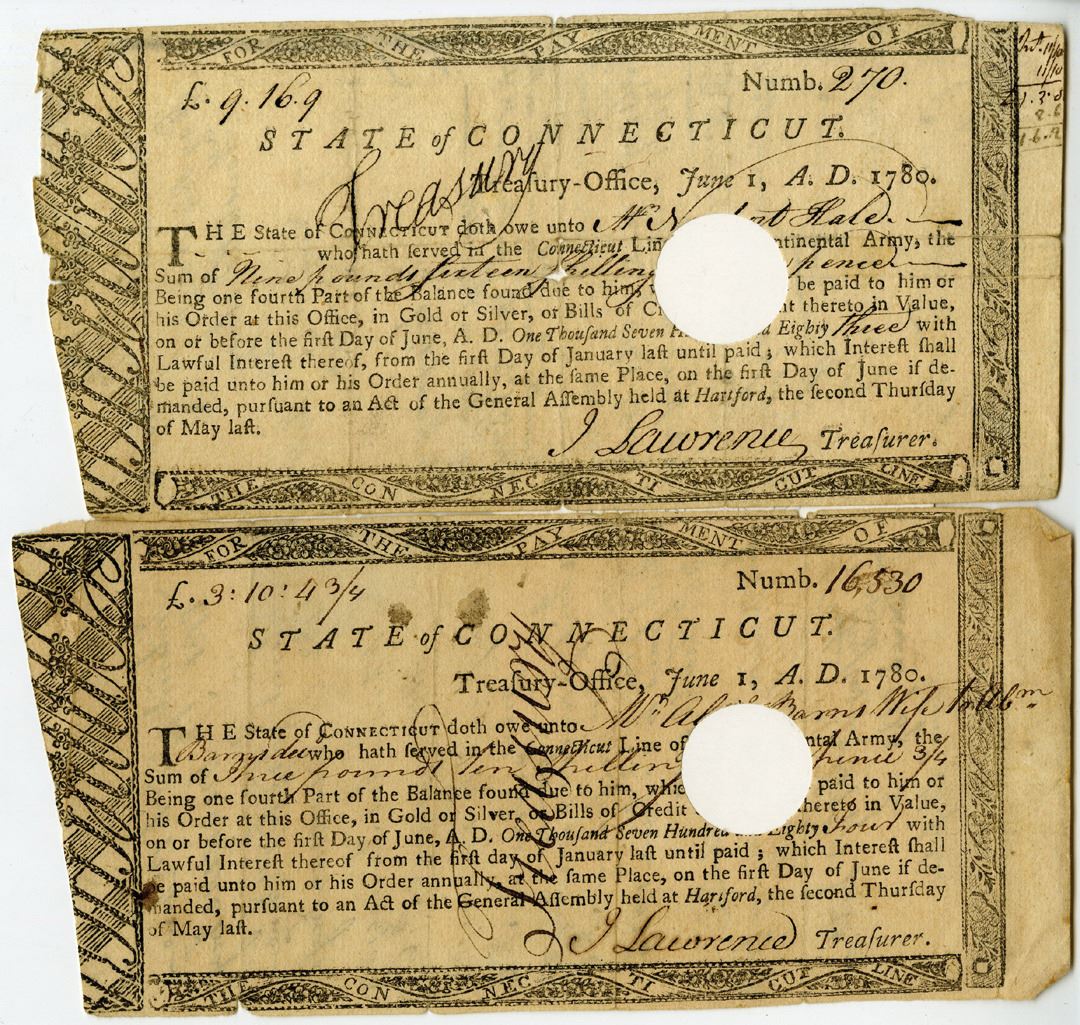 FOR THE PAYMENT OF
£. 9. 16. 9
Numb. 270.
STATE of CONNECTICUT.
Treasury
Treaſury-Office, June 1, A. D. 1780.
THE State of CONNECTICUT doth owe unto Mr Hale.
who hath ſerved in the Connecticut Lin ntinental Army, the
Sum of Nine pounds ſixteen ſhilling pence
Being one fourth Part of the Balance found due to him, be paid to him or
his Order at this Office, in Gold or Silver, or Bills of Cr nt thereto in Value,
on or before the firſt Day of June, A. D. One Thouſand Seven H d Eighty three with
Lawful Intereſt thereof, from the firſt Day of January laſt until paid; which Intereſt ſhall
be paid unto him or his Order annually, at the ſame Place, on the firſt Day of June if de-
manded, purſuant to an Act of the General Aſſembly held at Hartford, the ſecond Thurſday
of May laſt.
J Lawrence Treaſurer.
THE CONNECTICUT LINE
FOR THE PAYMENT OF
£. 3: 10: 4 3/4
Numb. 16,530
STATE of CONNECTICUT.
Treaſury-Office, June 1, A. D. 1780.
Treasury
THE State of CONNECTICUT doth owe unto Barns Wife to Abm
Barns who hath ſerved in the Connecticut Line of ntal Army, the
Sum of Three pounds ten ſhilling pence 3/4
Being one fourth Part of the Balance found due to him, whic paid to him or
his Order at this Office, in Gold or Silver, or Bills of Credit hereto in Value,
on or before the firſt Day of June, A. D. One Thouſand Seven Hundred and Eighty four with
Lawful Intereſt thereof from the firſt day of January laſt until paid; which Intereſt ſhall
be paid unto him or his Order annually, at the ſame Place, on the firſt Day of June if de-
manded, purſuant to an Act of the General Aſſembly held at Hartford, the ſecond Thurſday
of May laſt.
J Lawrence Treaſurer.
THE CONNECTICUT LINE